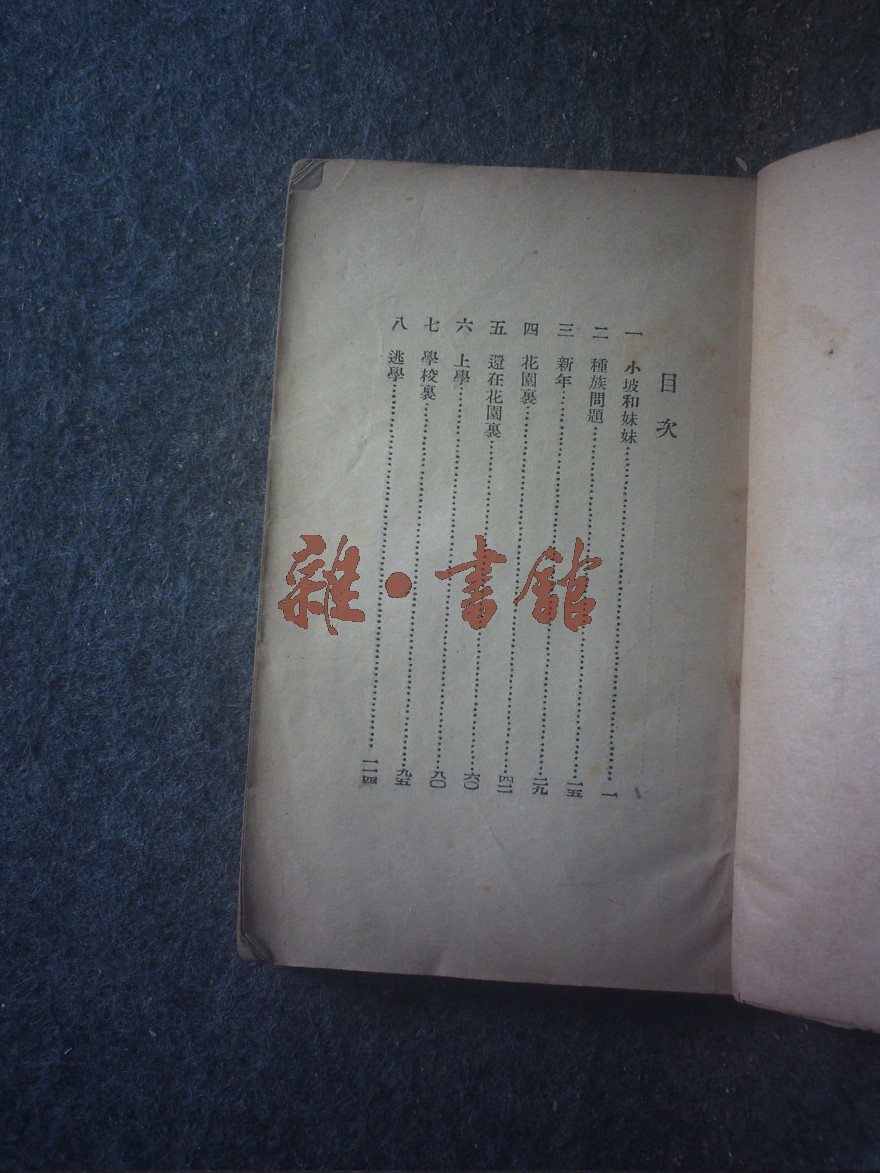 目次
一 小坡和妹妹……一
二 種族問題……一五
三 新年……二九
四 花園裏……四二
五 還在花園裏……六〇
六 上學……八〇
七 學校裏……九五
八 逃學……一一四
雜·書館